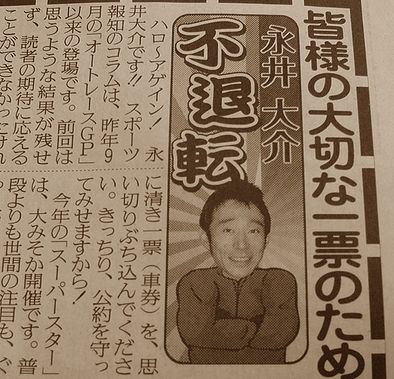 皆様の大切な一票のため
永井 大介
不退転
ハロ～アゲイン! 永
井大介です!! スポーツ
報知のコラムは、昨年9
月の「オートレースGP」
以来の登場です。前回は
思うような結果が残せ
ず、読者の期待に応える
ことができなかったけれ
に清き一票(車券)を、思
い切りぶち込んでくださ
い。きっちり、公約を守っ
てみせますから!
今年の「スーパースター
は、大みそか開催です。普
段よりも世間の注目も、ぐ